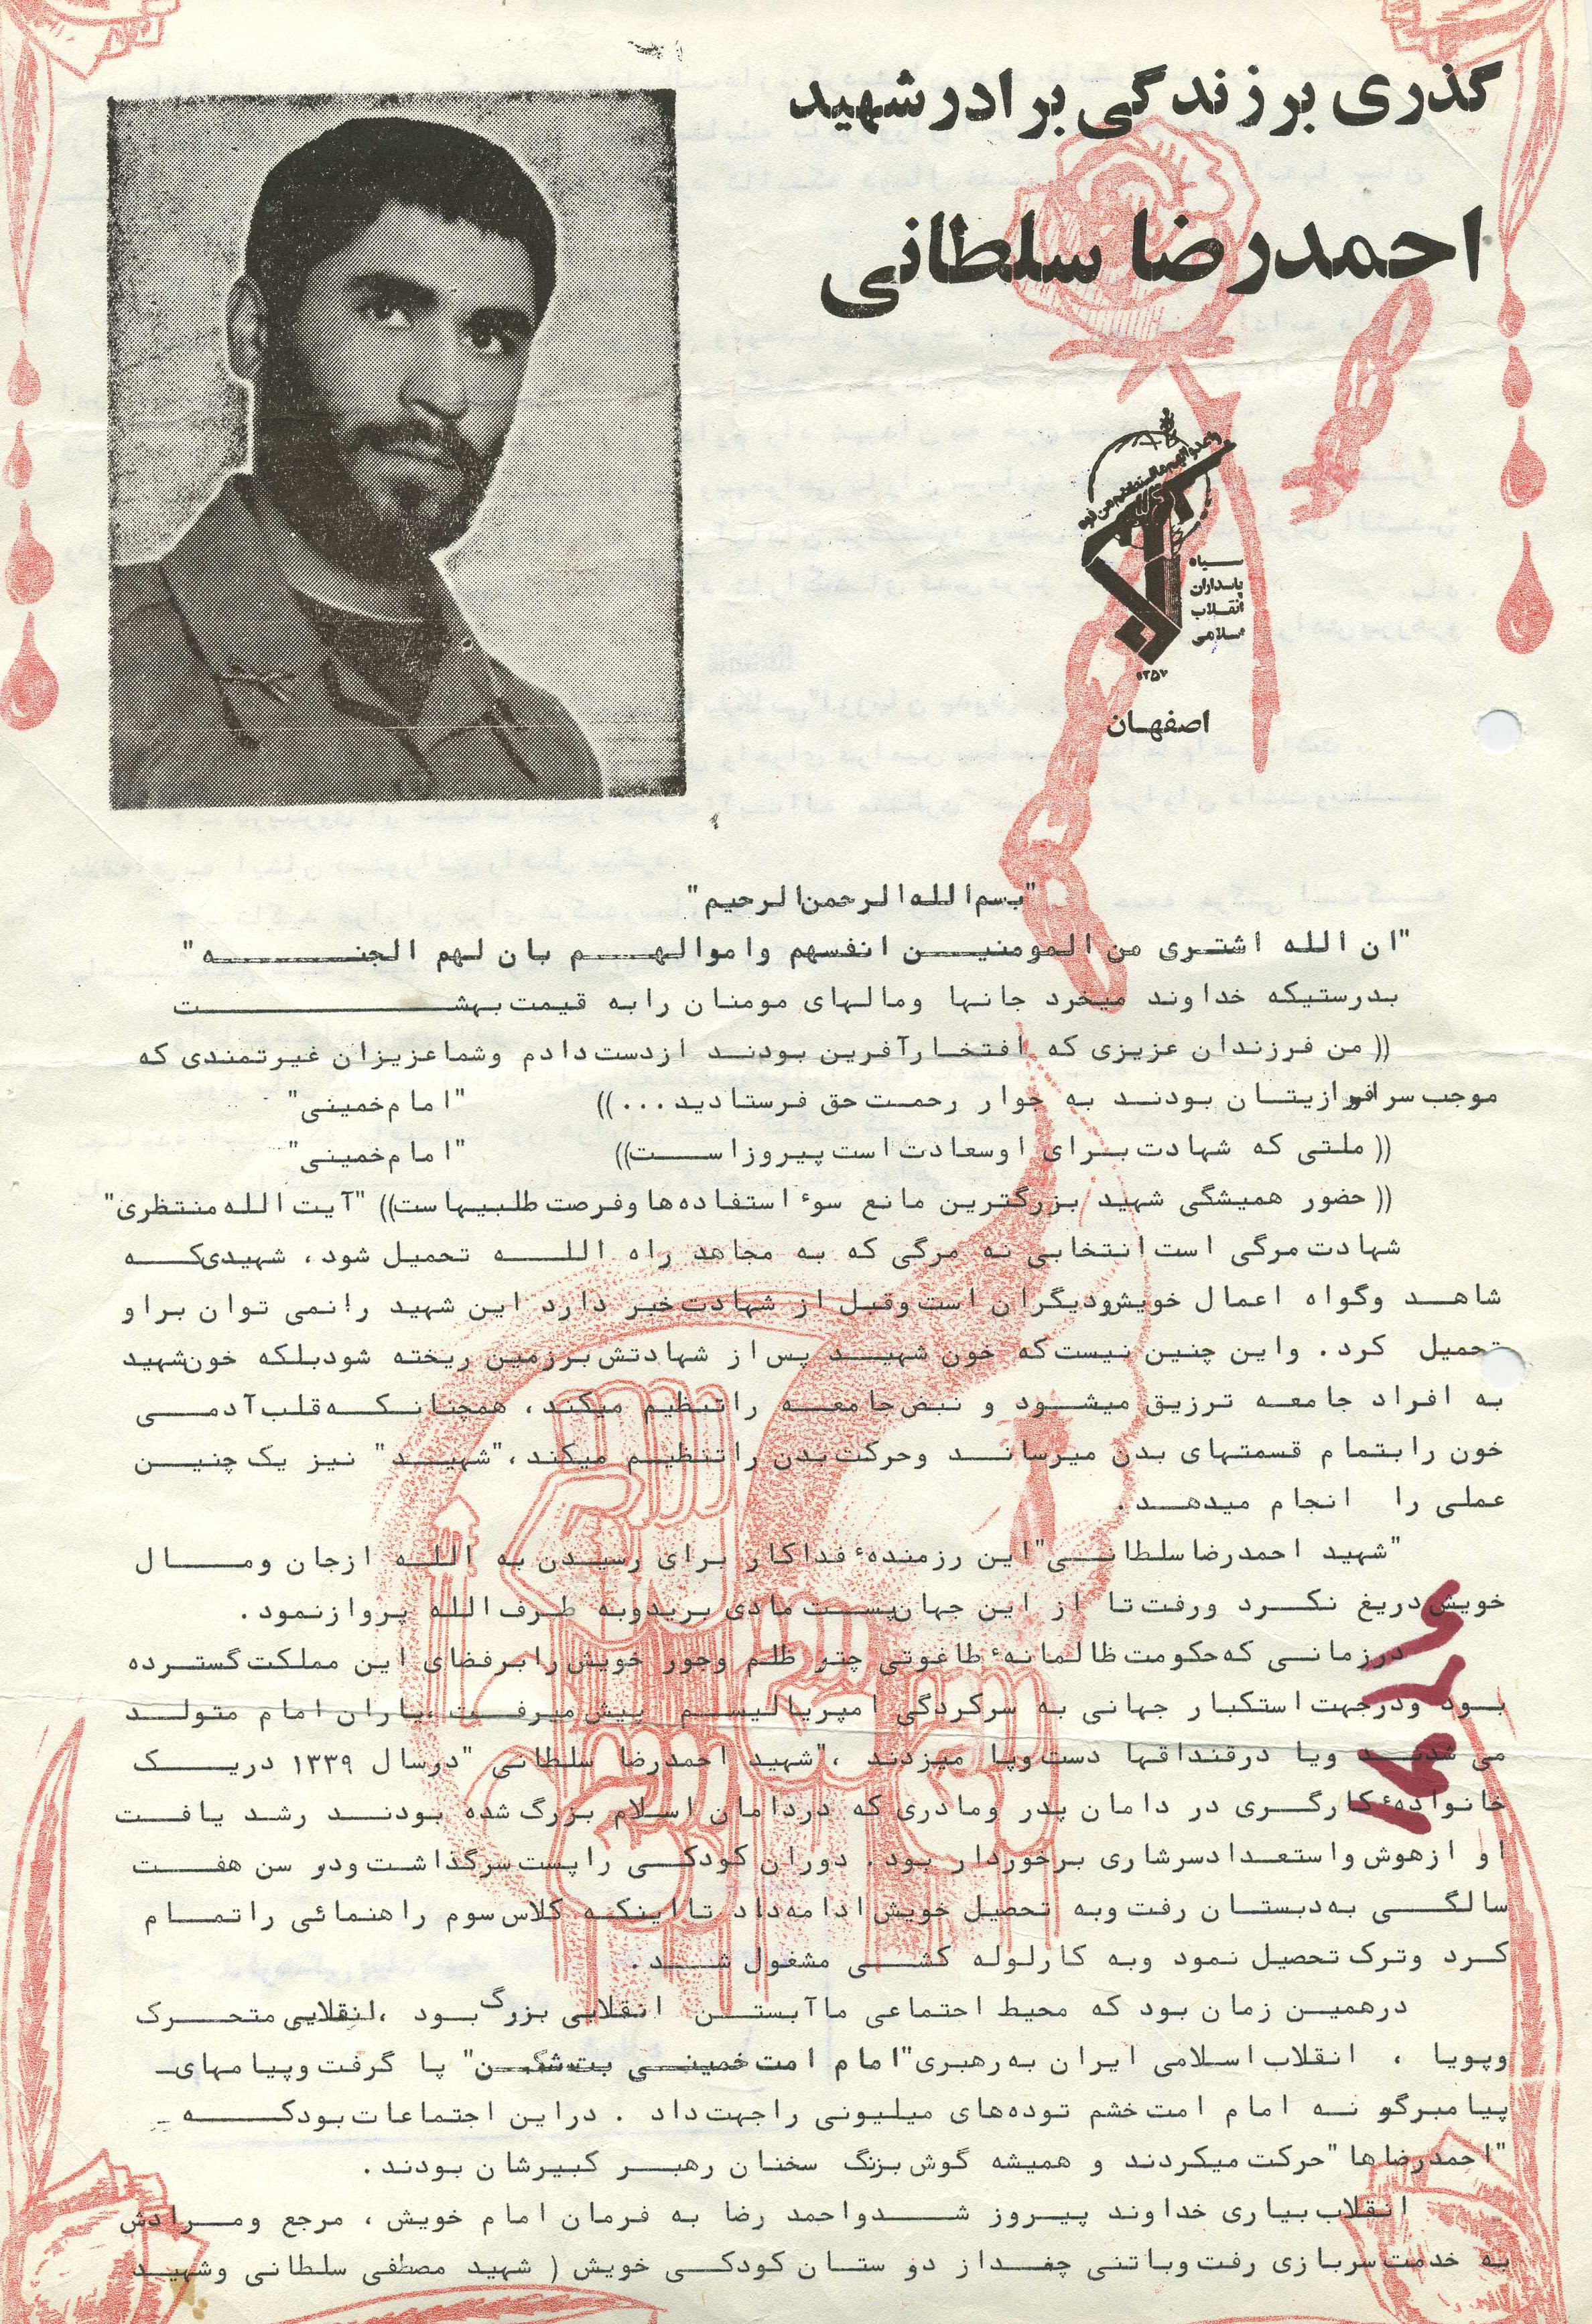 گذری بر زندگی برادر شهید
احمدرضا سلطانی
سپاه
پاسداران
انقلاب
اسلامی
۱۳۵۷
اصفهان
"بسم الله الرحمن الرحیم"
"ان الله اشتری من المومنین انفسهم واموالهم بان لهم الجنه"
بدرستیکه خداوند میخرد جانها ومالهای مومنان رابه قیمت بهشت
(( من فرزندان عزیزی که افتخارآفرین بودند ازدست دادم وشماعزیزان غیرتمندی که
موجب سرافرازیتان بودند به جوار رحمت حق فرستادید ...)) "امام خمینی"
(( ملتی که شهادت برای اوسعادت است پیروزاست)) "امام خمینی"
(( حضور همیشگی شهید بزرگترین مانع سوء استفاده ها وفرصت طلبیهاست)) "آیت الله منتظری"
شهادت مرگی است انتخابی نه مرگی که به مجاهد راه الله تحمیل شود ، شهیدی که
شاهد وگواه اعمال خویش ودیگران است وقبل از شهادت خبر دارد این شهید رانمی توان براو
تحمیل کرد . واین چنین نیست که خون شهید پس از شهادتش برزمین ریخته شود بلکه خون شهید
به افراد جامعه تزریق میشود و نبض جامعه راتنظیم میکند ، همچنانکه قلب آدمی
خون رابتمام قسمتهای بدن میرساند وحرکت بدن راتنظیم میکند ، "شهید" نیز یک چنین
عملی را انجام میدهد .
"شهید احمدرضا سلطانی" این رزمندهٔ فداکار برای رسیدن به الله ازجان ومال
خویش دریغ نکرد ورفت تا از این جهان پست مادی بریدوبه طرف الله پروازنمود .
درزمانی که حکومت ظالمانهٔ طاغوتی چتر ظلم وجور خویش رابرفضای این مملکت گسترده
بود ودرجهت استکبار جهانی به سرکردگی امپریالیسم پیش میرفت ،یاران امام متولد
می شدند ویا درقنداقها دست وپا میزدند ، "شهید احمدرضا سلطانی "درسال ۱۳۳۹ دریک
خانوادهٔ کارگری در دامان پدر ومادری که دردامان اسلام بزرگ شده بودند رشد یافت
او ازهوش واستعداد سرشاری برخوردار بود . دوران کودکی راپشت سرگذاشت ودر سن هفت
سالگی به دبستان رفت وبه تحصیل خویش ادامه داد تااینکه کلاس سوم راهنمائی راتمام
کرد وترک تحصیل نمود وبه کار لوله کشی مشغول شد .
درهمین زمان بود که محیط اجتماعی ماآبستن انقلابی بزرگ بود ،انقلابی متحرک
وپویا ، انقلاب اسلامی ایران به رهبری "امام امت خمینی بت شکن" پا گرفت وپیامهای
پیامبرگونه امام امت خشم توده های میلیونی راجهت داد . دراین اجتماعات بودکه
"احمدرضاها "حرکت میکردند و همیشه گوش بزنگ سخنان رهبر کبیرشان بودند .
انقلاب بیاری خداوند پیروز شدواحمد رضا به فرمان امام خویش ، مرجع ومرادش
به خدمت سربازی رفت وباتنی چنداز دوستان کودکی خویش ( شهید مصطفی سلطانی وشهید